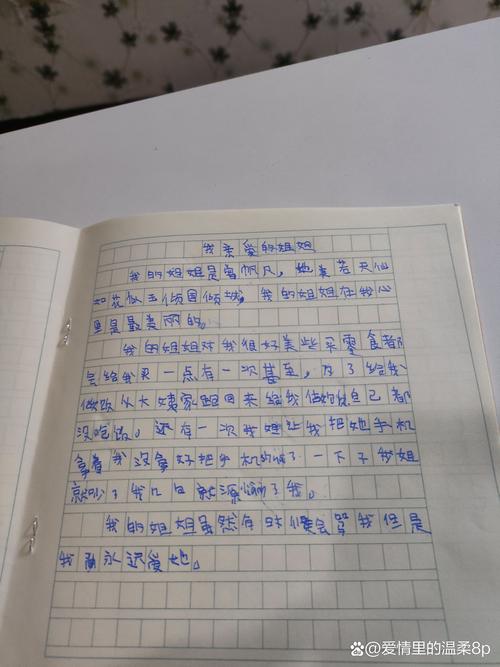 我亲爱的姐姐
我的姐姐是曾帆凡,她美若天仙
如花似玉倾国倾城,我的姐姐在我心
里是最美丽的。
我的姐姐对我很好美些买零食都
会给我买一点有一次甚至,为了给我
做饭从大姨家跑回来给我做她自己都
没吃饭。还有一次我姐让我把她手机
拿着我没拿好把手机了一下子我姐
就了我
我的姐姐虽然有时候会骂我但是
我永远爱她。
@爱情里的温柔8p